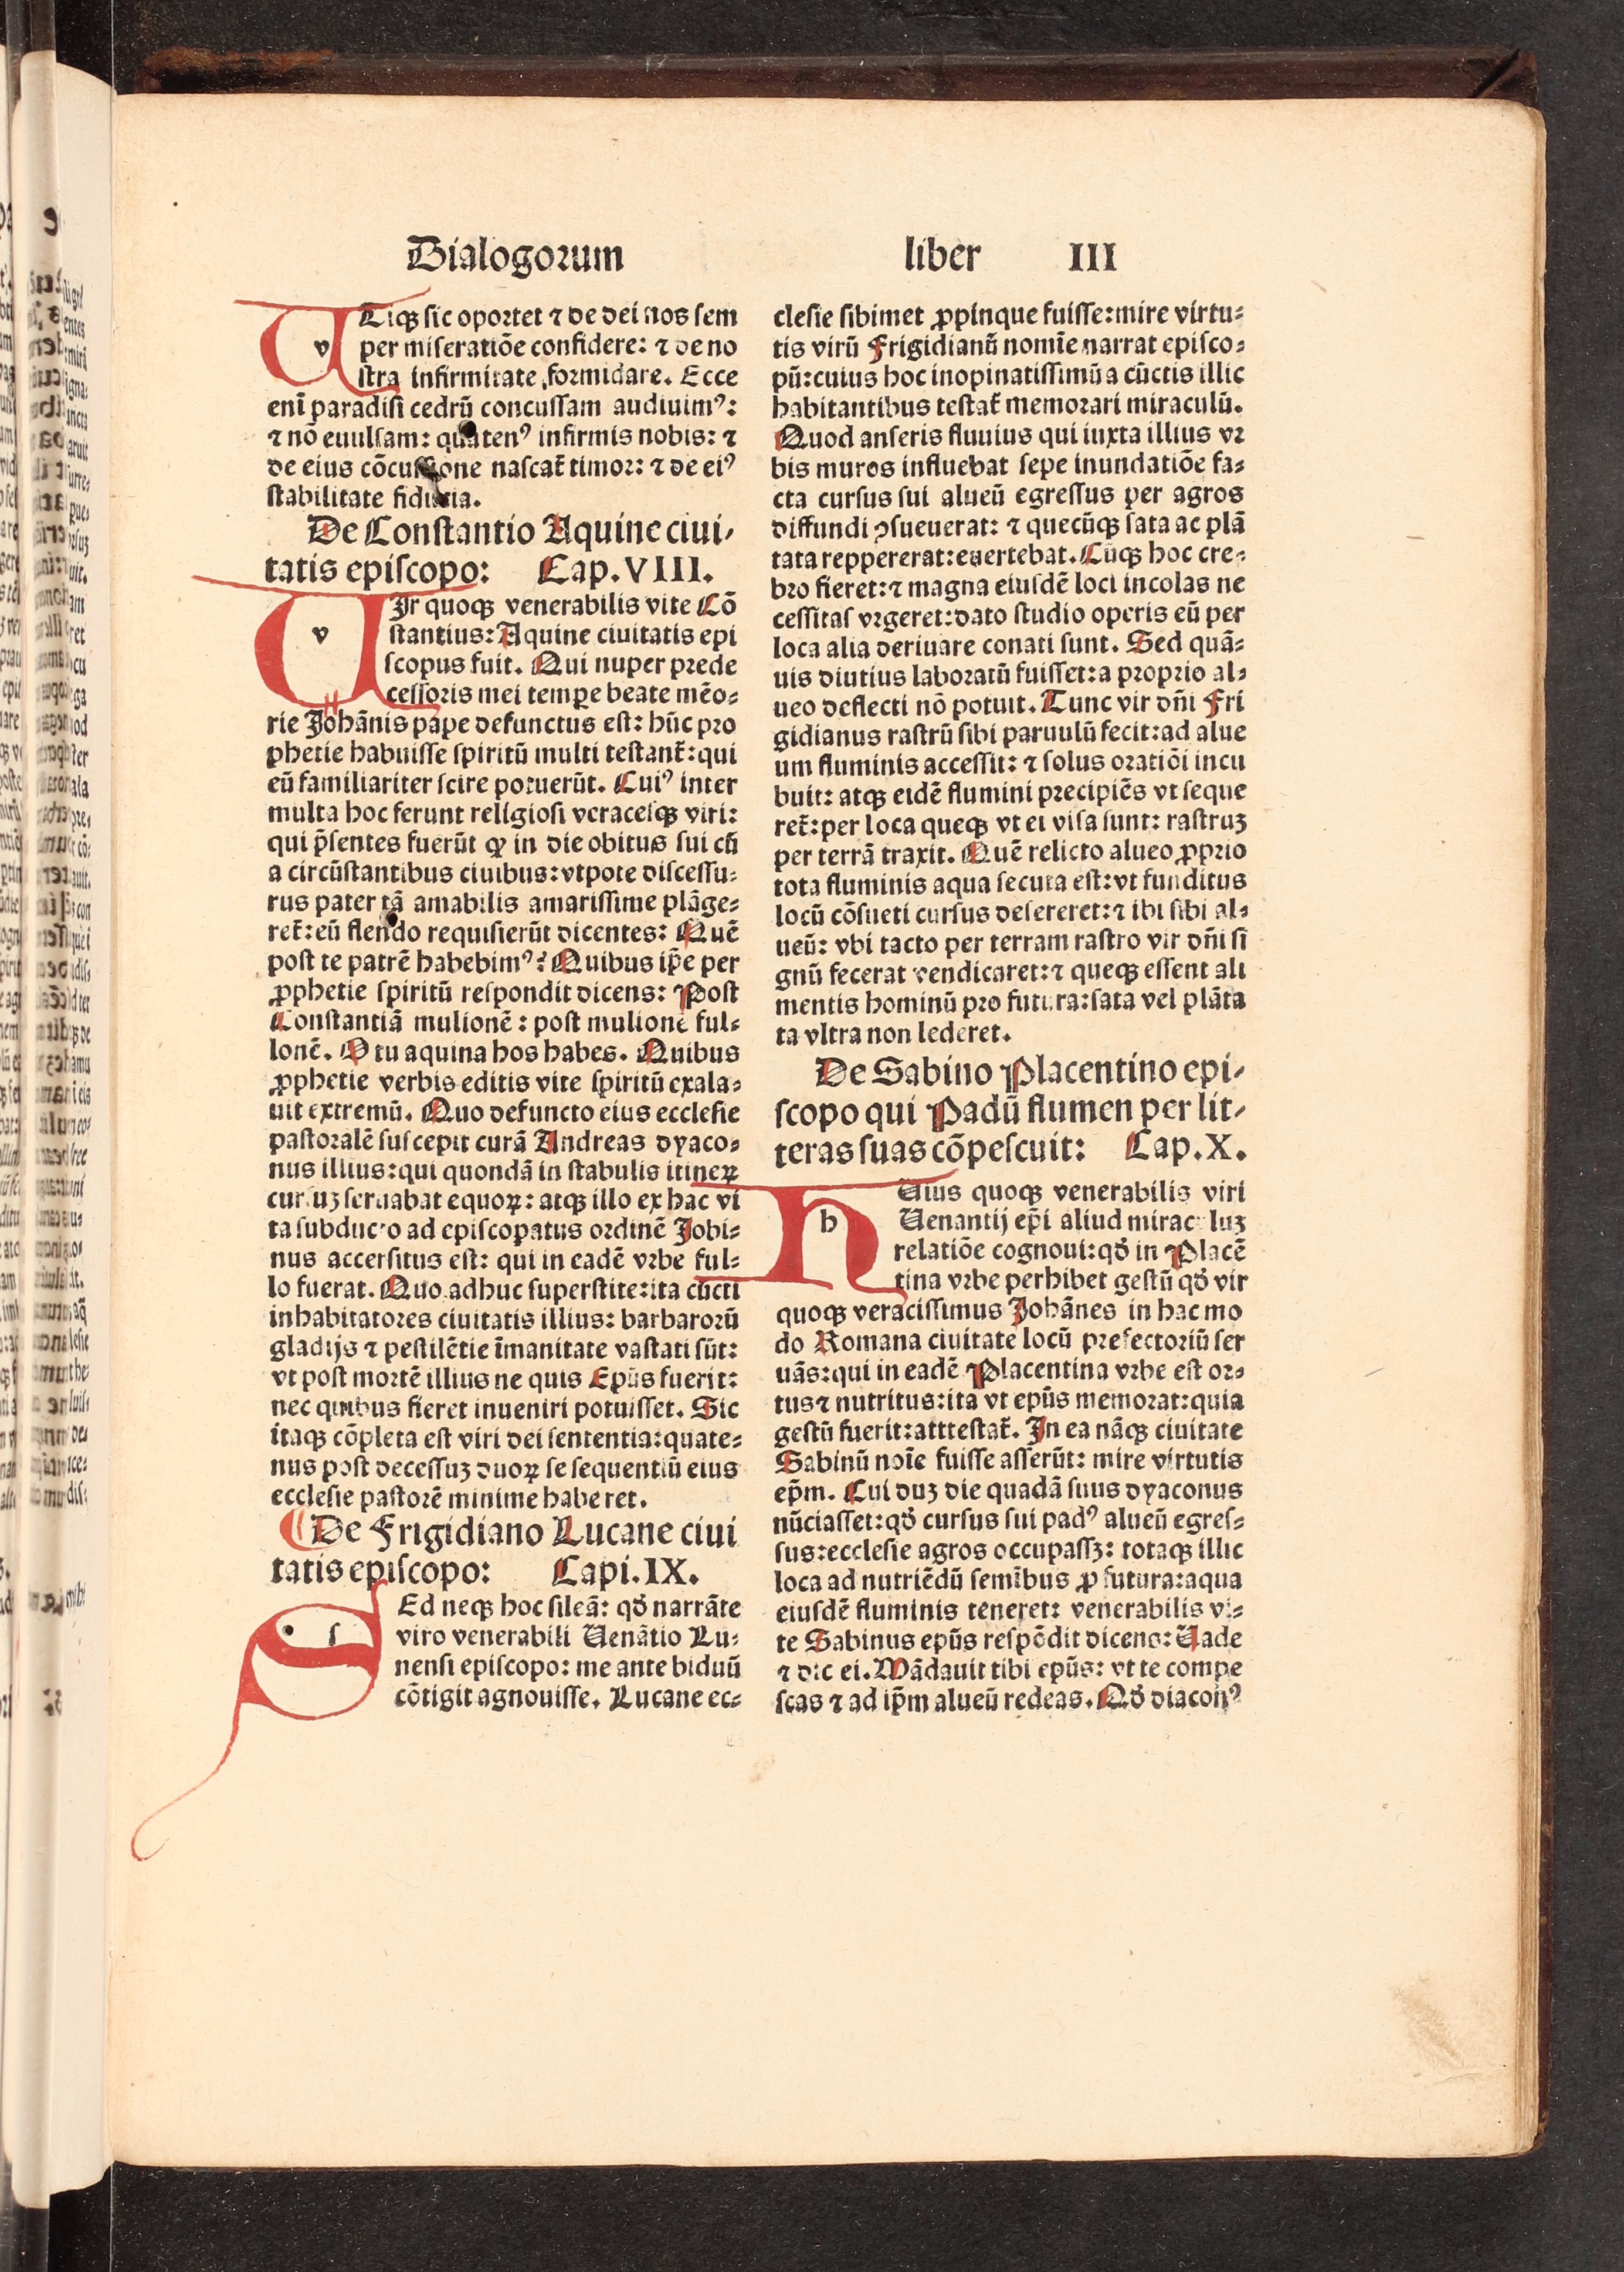 Dialogorum liber III
UTiqꝫ sic oportet ⁊ de dei nos sem
per miseratiōe confidere: ⁊ de no
stra infirmitate formidare. Ecce
enī paradisi cedrū concussam audiuimꝰ:
⁊ nō euulsam: quatenꝰ infirmis nobis: ⁊
de eius cōcussione nascat᷑ timor: ⁊ de eiꝰ
stabilitate fiducia.
De Constantio Aquine ciui-
tatis episcopo: Cap. VIII.
UIr quoqꝫ venerabilis vite Cō
stantius: Aquine ciuitatis epi
scopus fuit. Qui nuper prede
cessoris mei tempe beate mēo-
rie Johānis pape defunctus est: hūc pro
phetie habuisse spiritū multi testant᷑: qui
eū familiariter scire potuerūt. Cuiꝰ inter
multa hoc ferunt religiosi veraceisqꝫ viri:
qui p̄sentes fuerūt ꝙ in die obitus sui cū
a circūstantibus ciuibus: vtpote discessu-
rus pater tā amabilis amarissime plāge-
ret᷑: eū flendo requisierūt dicentes: Quē
post te patrē habebimꝰ? Quibus ip̄e per
ꝓphetie spiritū respondit dicens: Post
Constantiā mulionē: post mulionē ful-
lonē. O tu aquina hos habes. Quibus
ꝓphetie verbis editis vite spiritū exala-
uit extremū. Quo defuncto eius ecclesie
pastoralē suscepit curā Andreas dyaco-
nus illius: qui quondā in stabulis itineꝝ
cursuꝫ seruabat equoꝝ: atqꝫ illo ex hac vi
ta subducto ad episcopatus ordinē Jobi-
nus accersitus est: qui in eadē vrbe ful-
lo fuerat. Quo adhuc superstite: ita cūcti
inhabitatores ciuitatis illius: barbarorū
gladijs ⁊ pestilētie īmanitate vastati sūt:
vt post mortē illius ne quis Epūs fuerit:
nec quibus fieret inueniri potuisset. Sic
itaqꝫ cōpleta est viri dei sententia: quate-
nus post decessuꝫ duoꝝ se sequentiū eius
ecclesie pastorē minime haberet.
De Frigidiano Lucane ciui
tatis episcopo: Capi. IX.
SEd neqꝫ hoc sileā: qd̓ narrāte
viro venerabili Uenātio Lu-
nensi episcopo: me ante biduū
cōtigit agnouisse. Lucane ec-
clesie sibimet ꝓpinque fuisse: mire virtu-
tis virū Frigidianū nomīe narrat episco-
pū: cuius hoc inopinatissimū a cūctis illic
habitantibus testat᷑ memorari miraculū.
Quod anseris fluuius qui iuxta illius vr
bis muros influebat sepe inundatiōe fa-
cta cursus sui alueū egressus per agros
diffundi ꝯsueuerat: ⁊ quecūqꝫ sata ac plā
tata reppererat: euertebat. Cūqꝫ hoc cre-
bro fieret: ⁊ magna eiusdē loci incolas ne
cessitas vrgeret: dato studio operis eū per
loca alia deriuare conati sunt. Sed quā-
uis diutius laboratū fuisset: a proprio al-
ueo deflecti nō potuit. Tunc vir dn̄i Fri
gidianus rastrū sibi paruulū fecit: ad alue
um fluminis accessit: ⁊ solus oratiōi incu
buit: atqꝫ eidē flumini precipiēs vt seque
ret᷑: per loca queqꝫ vt ei visa sunt: rastruꝫ
per terrā traxit. Quē relicto alueo ꝓprio
tota fluminis aqua secuta est: vt funditus
locū cōsueti cursus desereret: ⁊ ibi sibi al-
ueū: vbi tacto per terram rastro vir dn̄i si
gnū fecerat vendicaret: ⁊ queqꝫ essent ali
mentis hominū pro futura: sata vel plāta
ta vltra non lederet.
De Sabino Placentino epi-
scopo qui Padū flumen per lit-
teras suas cōpescuit: Cap. X.
hUius quoqꝫ venerabilis viri
Uenantij ep̄i aliud miraculuꝫ
relatiōe cognoui: qd̓ in Placē
tina vrbe perhibet gestū qd̓ vir
quoqꝫ veracissimus Johānes in hac mo
do Romana ciuitate locū prefectoriū ser
uās: qui in eadē Placentina vrbe est or-
tus ⁊ nutritus: ita vt epūs memorat: quia
gestū fuerit: atttestat᷑. In ea nāqꝫ ciuitate
Sabinū noīe fuisse asserūt: mire virtutis
ep̄m. Cui duꝫ die quadā suus dyaconus
nūciasset: qd̓ cursus sui padꝰ alueū egres-
sus: ecclesie agros occupassꝫ: totaqꝫ illic
loca ad nutriēdū semībus ꝓ futura: aqua
eiusdē fluminis teneret: venerabilis vi-
te Sabinus epūs respōdit dicens: Uade
⁊ dic ei. Mādauit tibi epūs: vt te compe
scas ⁊ ad ip̄m alueū redeas. Qd̓ diaconꝰ